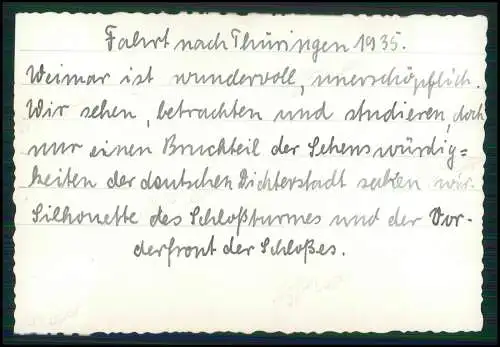 Fahrt nach Thüringen 1935.
Weimar ist wundervoll, unerschöpflich.
Wir sehen, betrachten und studieren, doch
nur einen Bruchteil der Sehenswürdig=
keiten der deutschen Dichterstadt sahen wir.
Silhouette des Schloßturmes und der Vor-
derfront der Schloßes.